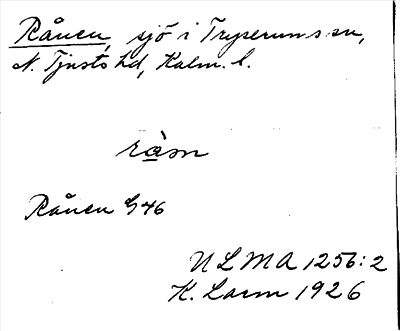 Rånen, sjö i Tryserums sn,
N. Tjusts hd, Kalm. l.
Rånen G46
ULMA 1256:2
K. Larm 1926